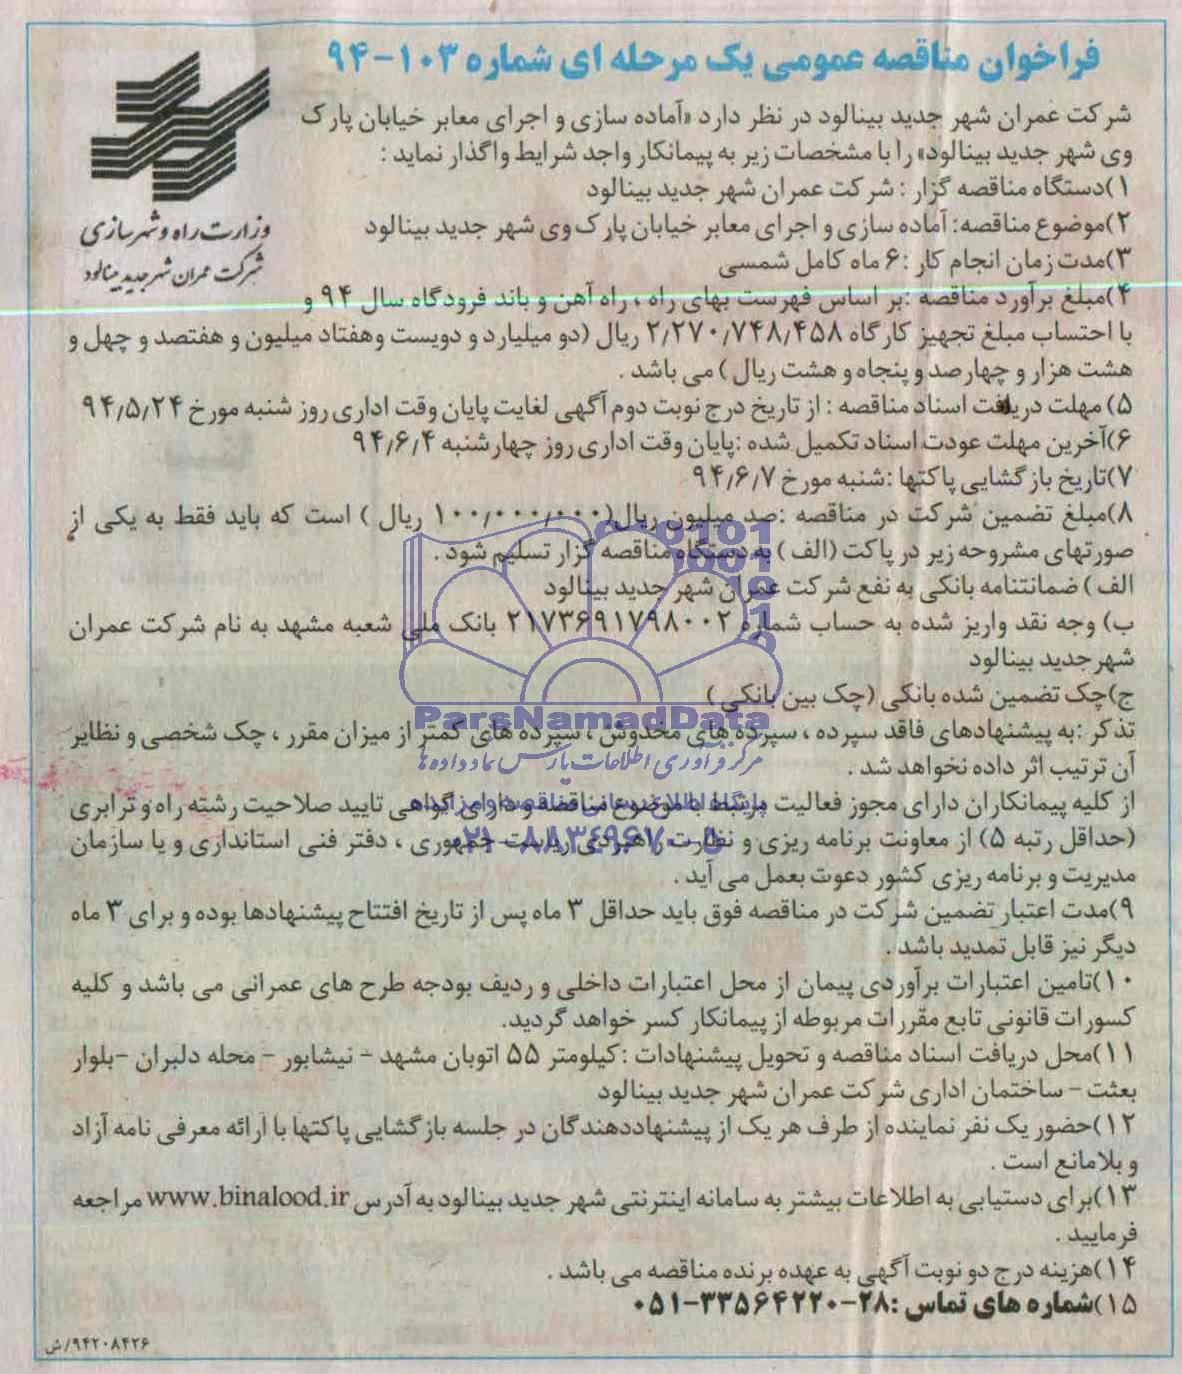 فراخوان مناقصه عمومی یک مرحله ای شماره ۱۰۳-۹۴
شرکت عمران شهر جدید بینالود در نظر دارد «آماده سازی و اجرای معابر خیابان پارک
وی شهر جدید بینالود» را با مشخصات زیر به پیمانکار واجد شرایط واگذار نماید :
۱)دستگاه مناقصه گزار : شرکت عمران شهر جدید بینالود
وزارت راه و شهرسازی
شرکت عمران شهر جدید بینالود
۲)موضوع مناقصه: آماده سازی و اجرای معابر خیابان پارک وی شهر جدید بینالود
۳)مدت زمان انجام کار :۶ ماه کامل شمسی
۴)مبلغ برآورد مناقصه :بر اساس فهرست بهای راه ، راه آهن و باند فرودگاه سال ۹۴ و
با احتساب مبلغ تجهیز کارگاه ۲/۲۷۰/۷۴۸/۴۵۸ ریال (دو میلیارد و دویست وهفتاد میلیون و هفتصد و چهل و
هشت هزار و چهارصد و پنجاه و هشت ریال ) می باشد .
۵) مهلت دریافت اسناد مناقصه : از تاریخ درج نوبت دوم آگهی لغایت پایان وقت اداری روز شنبه مورخ ۹۴/۵/۲۴
۶)آخرین مهلت عودت اسناد تکمیل شده :پایان وقت اداری روز چهارشنبه ۹۴/۶/۴
۷)تاریخ بازگشایی پاکتها :شنبه مورخ ۹۴/۶/۷
۸)مبلغ تضمین شرکت در مناقصه :صد میلیون ریال(۱۰۰/۰۰۰/۰۰۰ ریال ) است که باید فقط به یکی از
صورتهای مشروحه زیر در پاکت (الف ) به دستگاه مناقصه گزار تسلیم شود .
الف ) ضمانتنامه بانکی به نفع شرکت عمران شهر جدید بینالود
ب) وجه نقد واریز شده به حساب شماره ۲۱۷۳۶۹۱۷۹۸۰۰۲ بانک ملی شعبه مشهد به نام شرکت عمران
شهرجدید بینالود
ج)چک تضمین شده بانکی (چک بین بانکی )
ParsNamadData
تذکر :به پیشنهادهای فاقد سپرده ، سپرده های مخدوش ، سپرده های کمتر از میزان مقرر ، چک شخصی و نظایر
مرکز فرآوری اطلاعات پارس نماد داده ها
آن ترتیب اثر داده نخواهد شد .
از کلیه پیمانکاران دارای مجوز فعالیت مرتبط با موضوع مناقصه و دارای گواهی تایید صلاحیت رشته راه و ترابری
(حداقل رتبه ۵) از معاونت برنامه ریزی و نظارت راهبردی ریاست جمهوری ، دفتر فنی استانداری و یا سازمان
۰۲۱-۸۸۳۴۹۶۷۰-۵
مدیریت و برنامه ریزی کشور دعوت بعمل می آید .
۹)مدت اعتبار تضمین شرکت در مناقصه فوق باید حداقل ۳ ماه پس از تاریخ افتتاح پیشنهادها بوده و برای ۳ ماه
دیگر نیز قابل تمدید باشد .
۱۰)تامین اعتبارات برآوردی پیمان از محل اعتبارات داخلی و ردیف بودجه طرح های عمرانی می باشد و کلیه
کسورات قانونی تابع مقررات مربوطه از پیمانکار کسر خواهد گردید.
۱۱)محل دریافت اسناد مناقصه و تحویل پیشنهادات :کیلومتر ۵۵ اتوبان مشهد - نیشابور - محله دلبران -بلوار
بعثت - ساختمان اداری شرکت عمران شهر جدید بینالود
۱۲)حضور یک نفر نماینده از طرف هر یک از پیشنهاددهندگان در جلسه بازگشایی پاکتها با ارائه معرفی نامه آزاد
و بلامانع است .
۱۳)برای دستیابی به اطلاعات بیشتر به سامانه اینترنتی شهر جدید بینالود به آدرس www.binalood.ir مراجعه
فرمایید .
۱۴)هزینه درج دو نوبت آگهی به عهده برنده مناقصه می باشد .
۱۵)شماره های تماس :۲۸-۳۳۵۶۴۲۲۰-۰۵۱
۹۴۲۰۸۴۲۶/ش